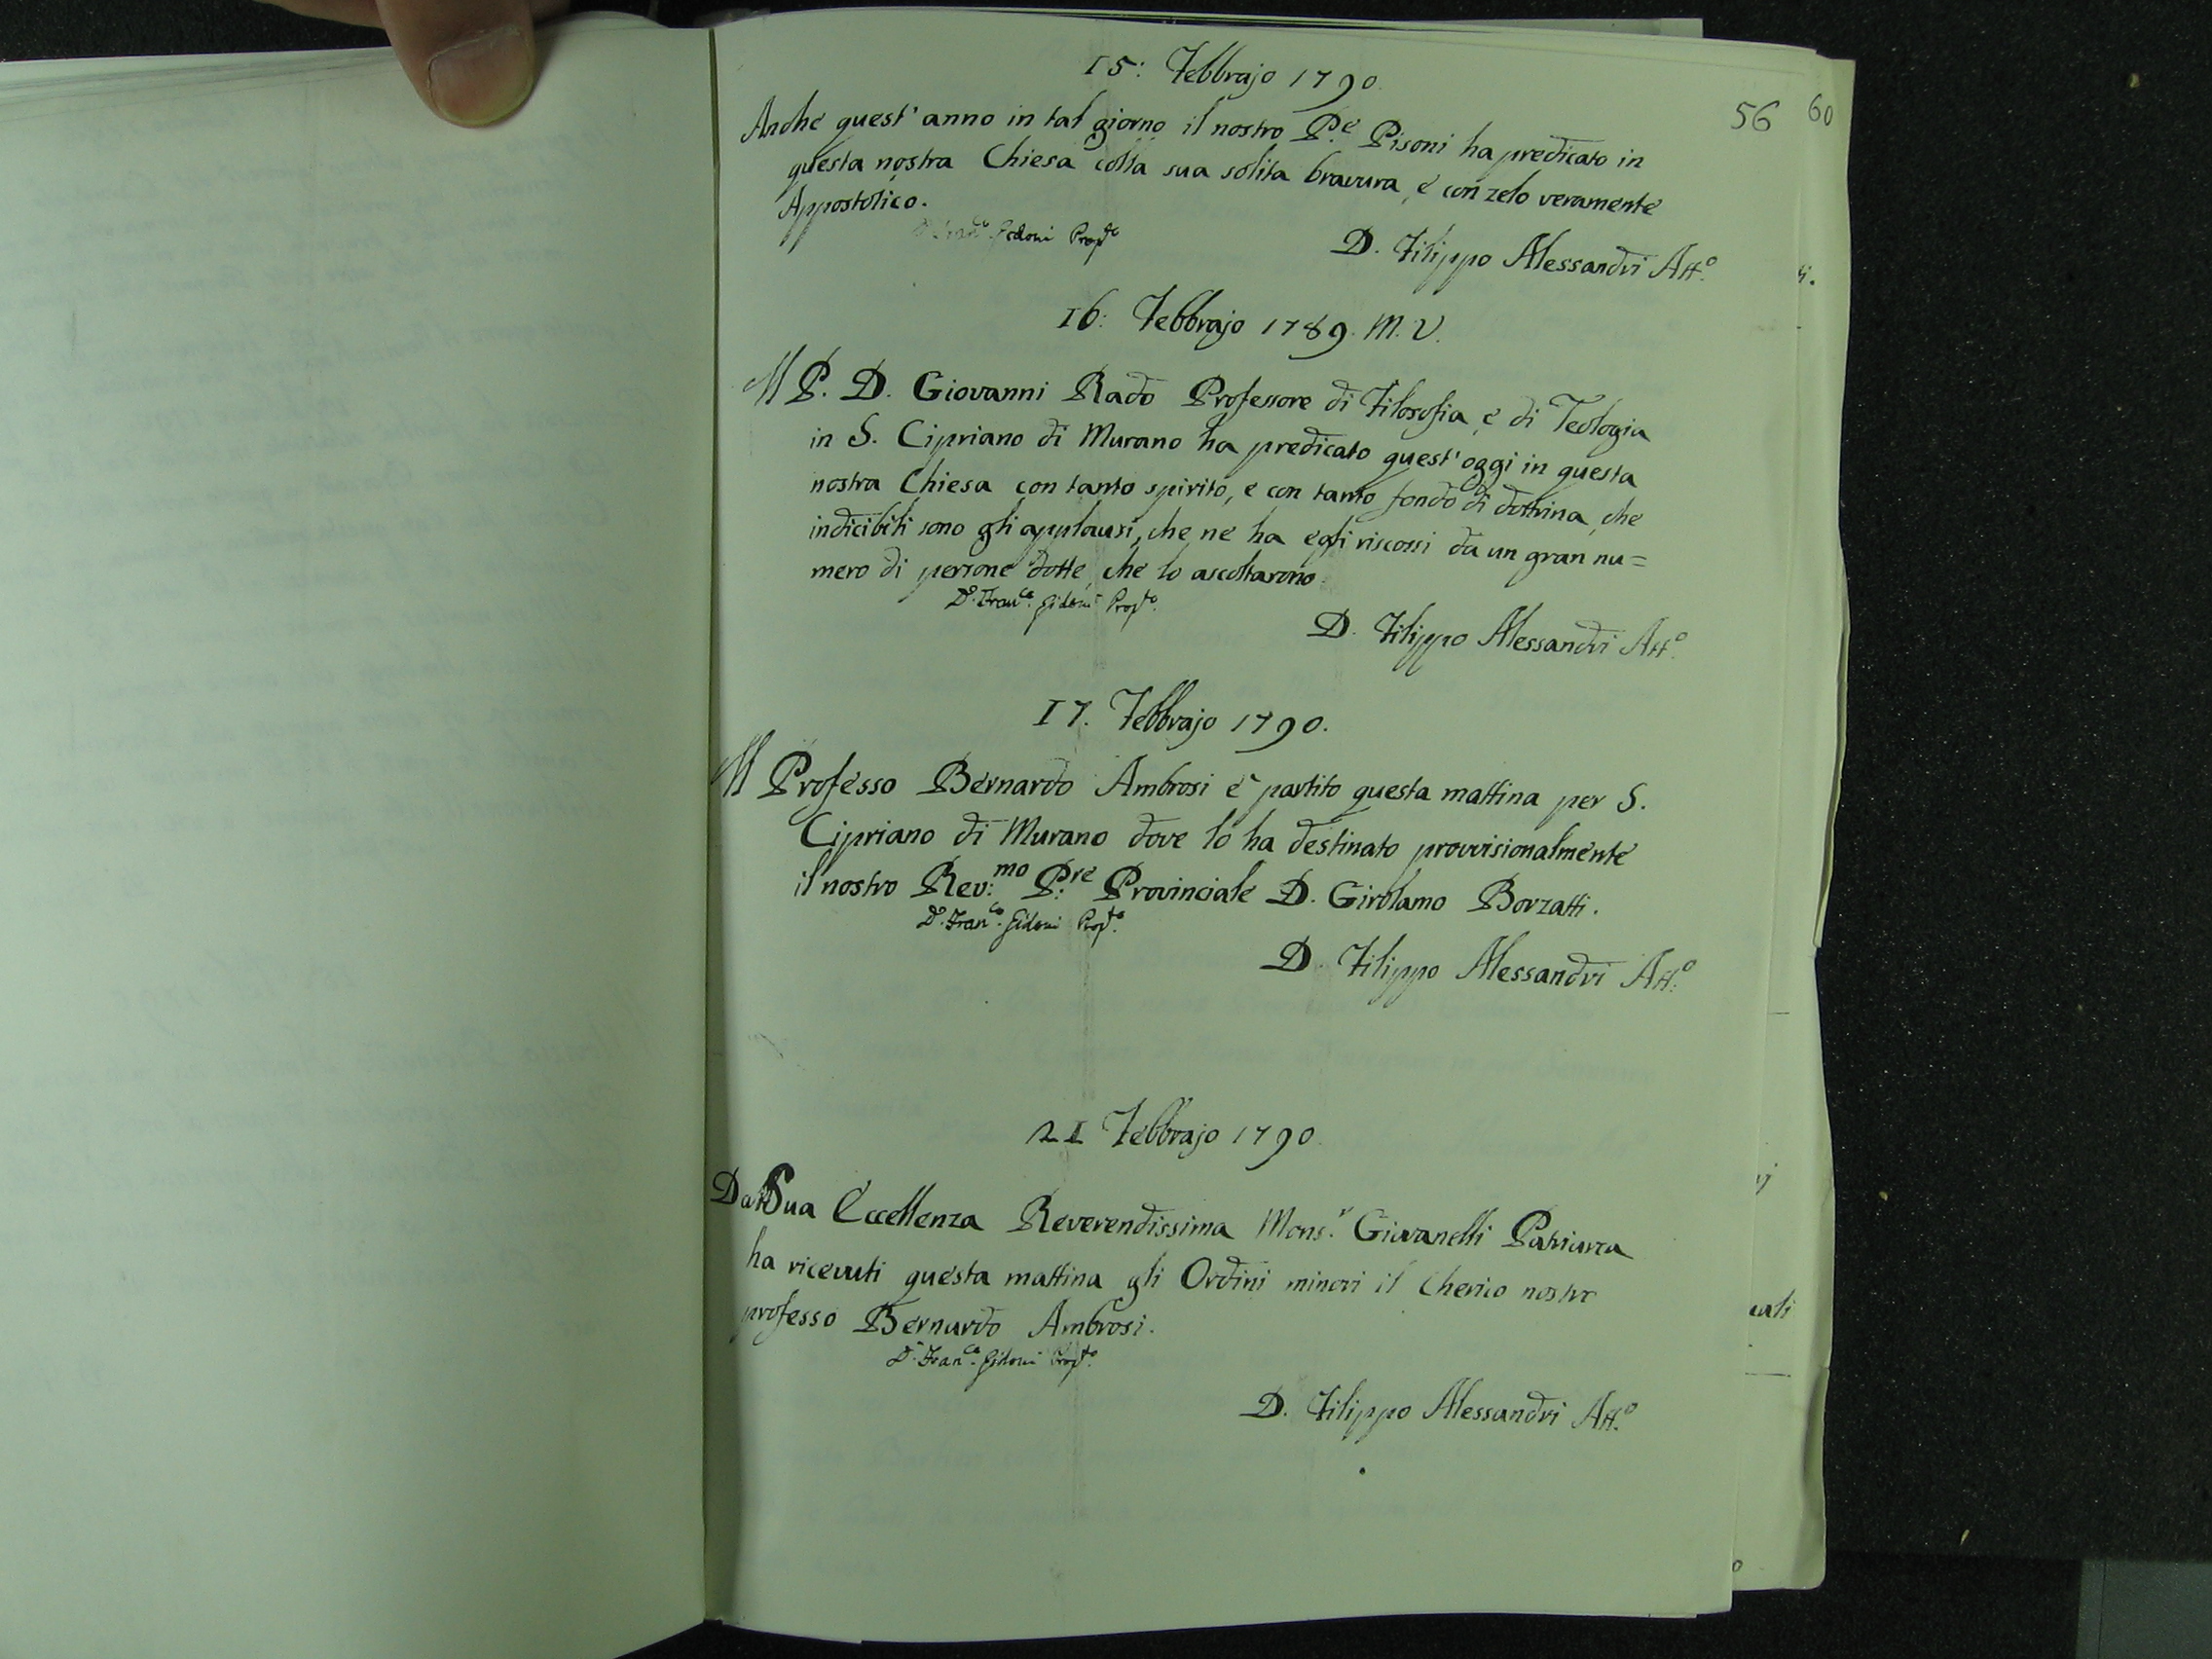 15: Febbrajo 1790.
56 60
Anche quest' anno in tal giorno il nostro P.e Pisoni ha predicato in
questa nostra Chiesa colla sua solita bravura, e con zelo veramente
Appostolico.
D. Fran.co Gidoni Prop.to
D. Filippo Alessandri Att.o
16: Febbrajo 1789. M. V.
Il P. D. Giovanni Rado Professore di Filosofia, e di Teologia
in S. Cipriano di Murano ha predicato quest' oggi in questa
nostra Chiesa con tanto spirito, e con tanto fondo di dottrina, che
indicibili sono gli applausi, che ne ha egli riscossi da un gran nu=
mero di persone dotte, che lo ascoltarono.
D. Fran.co Gidoni Prop.to
D. Filippo Alessandri Att.o
17. Febbrajo 1790.
Il Professo Bernardo Ambrosi è partito questa mattina per S.
Cipriano di Murano dove lo ha destinato provvisionalmente
il nostro Rev:mo P.re Provinciale D. Girolamo Borzatti.
D. Fran.co Gidoni Prop.to
D. Filippo Alessandri Att.o
21 Febbrajo 1790.
Da Sua Eccellenza Reverendissima Mons.r Giovanelli Patriarca
ha ricevuti questa mattina gli Ordini minori il Cherico nostro
professo Bernardo Ambrosi.
D. Fran.co Gidoni Prop.to
D. Filippo Alessandri Att.o